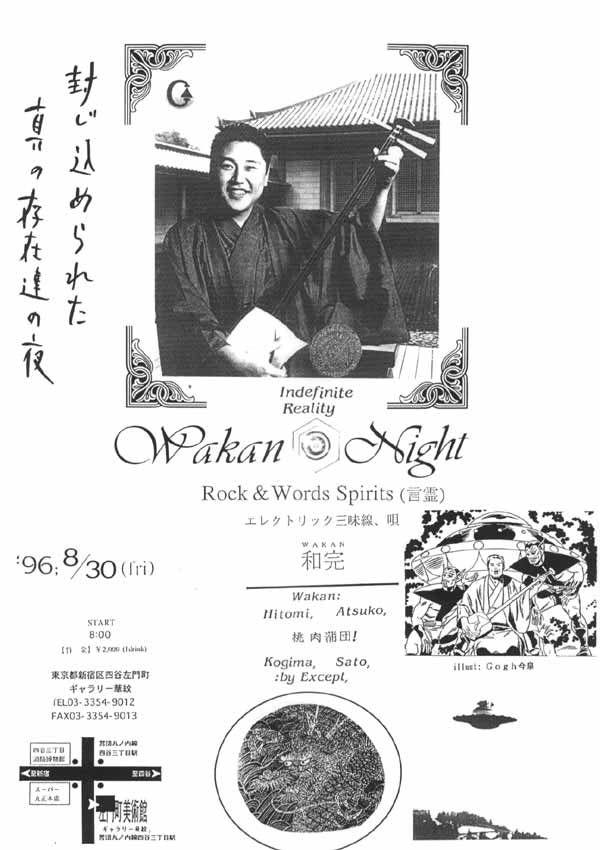 封じ込められた
真の存在達の夜
Indefinite
Reality
Wakan Night
Rock & Words Spirits (言霊)
エレクトリック三味線、唄
WAKAN
和完
'96; 8/30 (fri)
Wakan:
Hitomi, Atsuko,
桃肉蒲団!
Kogima, Sato,
:by Except,
START
8:00
【料 金】¥2,000 (1drink)
東京都新宿区四谷左門町
ギャラリー華紋
TEL03-3354-9012
FAX03-3354-9013
illust: Gogh今泉
営団丸ノ内線
四谷三丁目駅
四谷三丁目
消防博物館
至新宿
至四谷
スーパー
丸正本店
左門町美術館
ギャラリー華紋
営団丸ノ内線四谷三丁目駅